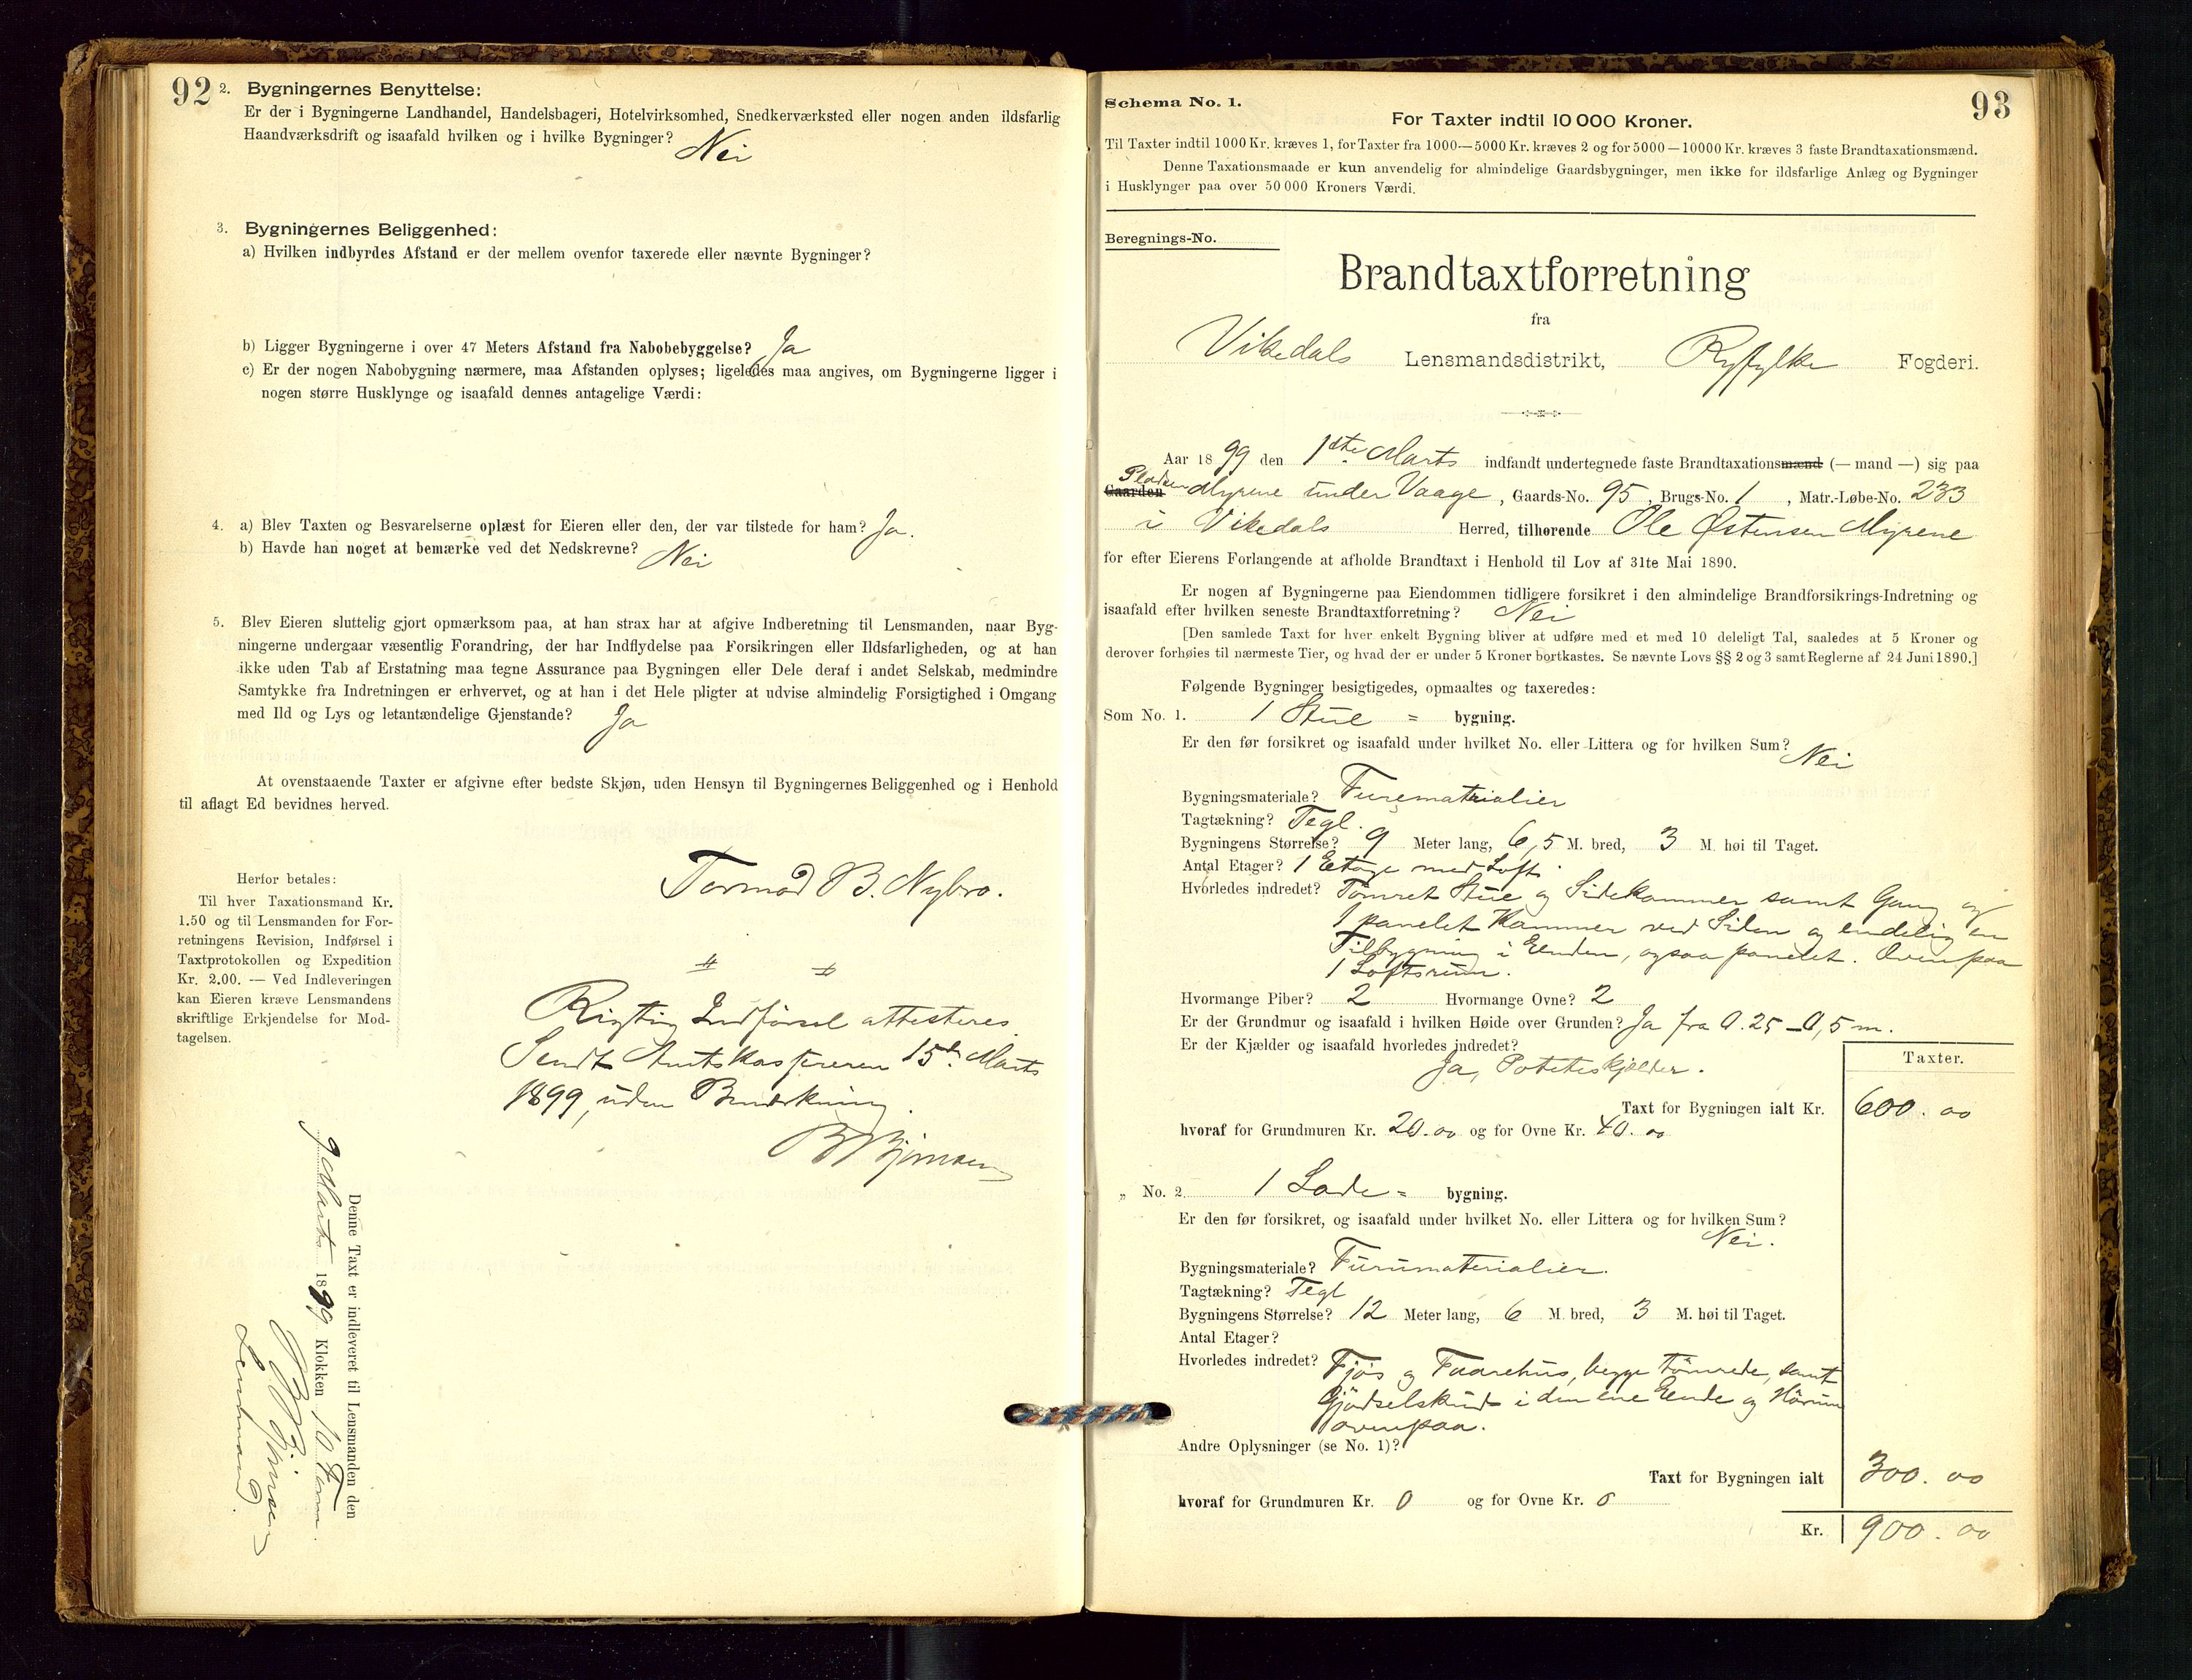 92
2. Bygningernes Benyttelse:
Er der i Bygningerne Landhandel, Handelsbageri, Hotelvirksomhed, Snedkerværksted eller nogen anden ildsfarlig
Haandværksdrift og isaafald hvilken og i hvilke Bygninger? Nei
3. Bygningernes Beliggenhed:
a) Hvilken indbyrdes Afstand er der mellem ovenfor taxerede eller nævnte Bygninger?
b) Ligger Bygningerne i over 47 Meters Afstand fra Nabobebyggelse? Ja
c) Er der nogen Nabobygning nærmere, maa Afstanden oplyses; ligeledes maa angives, om Bygningerne ligger i
nogen større Husklynge og isaafald dennes antagelige Værdi:
4. a) Blev Taxten og Besvarelserne oplæst for Eieren eller den, der var tilstede for ham? Ja.
b) Havde han noget at bemærke ved det Nedskrevne? Nei
5. Blev Eieren sluttelig gjort opmærksom paa, at han strax har at afgive Indberetning til Lensmanden, naar Byg-
ningerne undergaar væsentlig Forandring, der har Indflydelse paa Forsikringen eller Ildsfarligheden, og at han
ikke uden Tab af Erstatning maa tegne Assurance paa Bygningen eller Dele deraf i andet Selskab, medmindre
Samtykke fra Indretningen er erhvervet, og at han i det Hele pligter at udvise almindelig Forsigtighed i Omgang
med Ild og Lys og letantændelige Gjenstande? Ja
At ovenstaaende Taxter er afgivne efter bedste Skjøn, uden Hensyn til Bygningernes Beliggenhed og i Henhold
til aflagt Ed bevidnes herved.
Tormod B. Nybro.
Herfor betales:
Til hver Taxationsmand Kr.
1.50 og til Lensmanden for For-
retningens Revision, Indførsel i
Taxtprotokollen og Expedition
Kr. 2.00. — Ved Indleveringen
kan Eieren kræve Lensmandens
skriftlige Erkjendelse for Mod-
tagelsen.
Rigtig Indførsel attesteres
Sendt Amtskassereren 15de Marts
1899, uden Bemærkning.
B Bjørnsen
Denne Taxt er indleveret til Lensmanden den
9 Marts 1899 Klokken 10 Form.
B Bjørnsen
Lensmand.
93
Schema No. 1.
For Taxter indtil 10 000 Kroner.
Til Taxter indtil 1000 Kr. kræves 1, for Taxter fra 1000—5000 Kr. kræves 2 og for 5000—10000 Kr. kræves 3 faste Brandtaxationsmænd.
Denne Taxationsmaade er kun anvendelig for almindelige Gaardsbygninger, men ikke for ildsfarlige Anlæg og Bygninger
i Husklynger paa over 50 000 Kroners Værdi.
Beregnings-No.
Brandtaxtforretning
fra
Vikedals Lensmandsdistrikt, Ryfylke Fogderi.
Aar 1899 den 1ste Marts indfandt undertegnede faste Brandtaxationsmænd (— mand —) sig paa
Pladsen
Gaarden Myrene under Vaage, Gaards-No. 95, Brugs-No. 1, Matr.-Løbe-No. 233
i Vikedals Herred, tilhørende Ole Østensen Myrene
for efter Eierens Forlangende at afholde Brandtaxt i Henhold til Lov af 31te Mai 1890.
Er nogen af Bygningerne paa Eiendommen tidligere forsikret i den almindelige Brandforsikrings-Indretning og
isaafald efter hvilken seneste Brandtaxtforretning? Nei
[Den samlede Taxt for hver enkelt Bygning bliver at udføre med et med 10 deleligt Tal, saaledes at 5 Kroner og
derover forhøies til nærmeste Tier, og hvad der er under 5 Kroner bortkastes. Se nævnte Lovs §§ 2 og 3 samt Reglerne af 24 Juni 1890.]
Følgende Bygninger besigtigedes, opmaaltes og taxeredes:
Som No. 1. 1 Stue = bygning.
Er den før forsikret og isaafald under hvilket No. eller Littera og for hvilken Sum? Nei
Bygningsmateriale? Furematerialier
Tagtækning? Tegl.
Bygningens Størrelse? 9 Meter lang, 6,5 M. bred, 3 M. høi til Taget.
Antal Etager? 1 Etage med Loft.
Hvorledes indredet? Tømret Stue og Sidekammer samt Gang og
1 panelet Kammer ved Siden og endelig en
Tilbygning i Enden, ogsaa panelet. Ovenpaa
1 Loftsrum.
Hvormange Piber? 2 Hvormange Ovne? 2
Er der Grundmur og isaafald i hvilken Høide over Grunden? Ja fra 0.25 - 0,5 m.
Er der Kjælder og isaafald hvorledes indredet?
Ja, Poteteskjælder.
Taxter.
Taxt for Bygningen ialt Kr. 600.00
hvoraf for Grundmuren Kr. 20.00 og for Ovne Kr. 40.00
„ No. 2 1 Lade = bygning.
Er den før forsikret, og isaafald under hvilket No. eller Littera og for hvilken Sum?
Nei.
Bygningsmateriale? Furumaterialier.
Tagtækning? Tegl
Bygningens Størrelse? 12 Meter lang, 6 M. bred, 3 M. høi til Taget.
Antal Etager?
Hvorledes indredet? Fjøs og Faarehus, begge tømrede, samt
Gjødselskud i den ene Ende og Hørum
ovenpaa.
Andre Oplysninger (se No. 1)?
Taxt for Bygningen ialt 300.00
hvoraf for Grundmuren Kr. 0 og for Ovne Kr. 0
Kr. 900.00